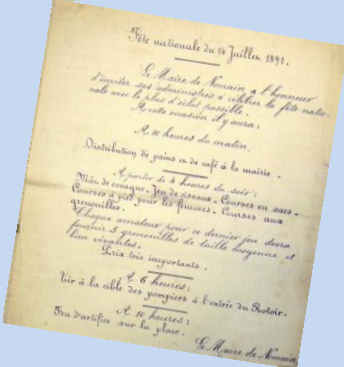 Fête nationale du 14 Juillet 1891.
Le Maire de Nomain a l'honneur
d'inviter ses administrés à célébrer la fête natio-
nale avec le plus d'éclat possible.
A cette occasion il y aura:
A 10 heures du matin.
Distribution de pains et de café à la mairie.
A partir de 4 heures du soir:
Mât de cocagne. Jeu de ciseaux. Courses en sacs.
Courses à pied pour les femmes. Courses aux
grenouilles.
Chaque amateur pour ce dernier jeu devra
fournir 3 grenouilles de taille moyenne et
bien vivantes.
Prix très importants.
A 6 heures:
Tir à la cible des pompiers à l'entrée du
A 10 heures:
Feu d'artifice sur la place.
Le Maire de Nomain